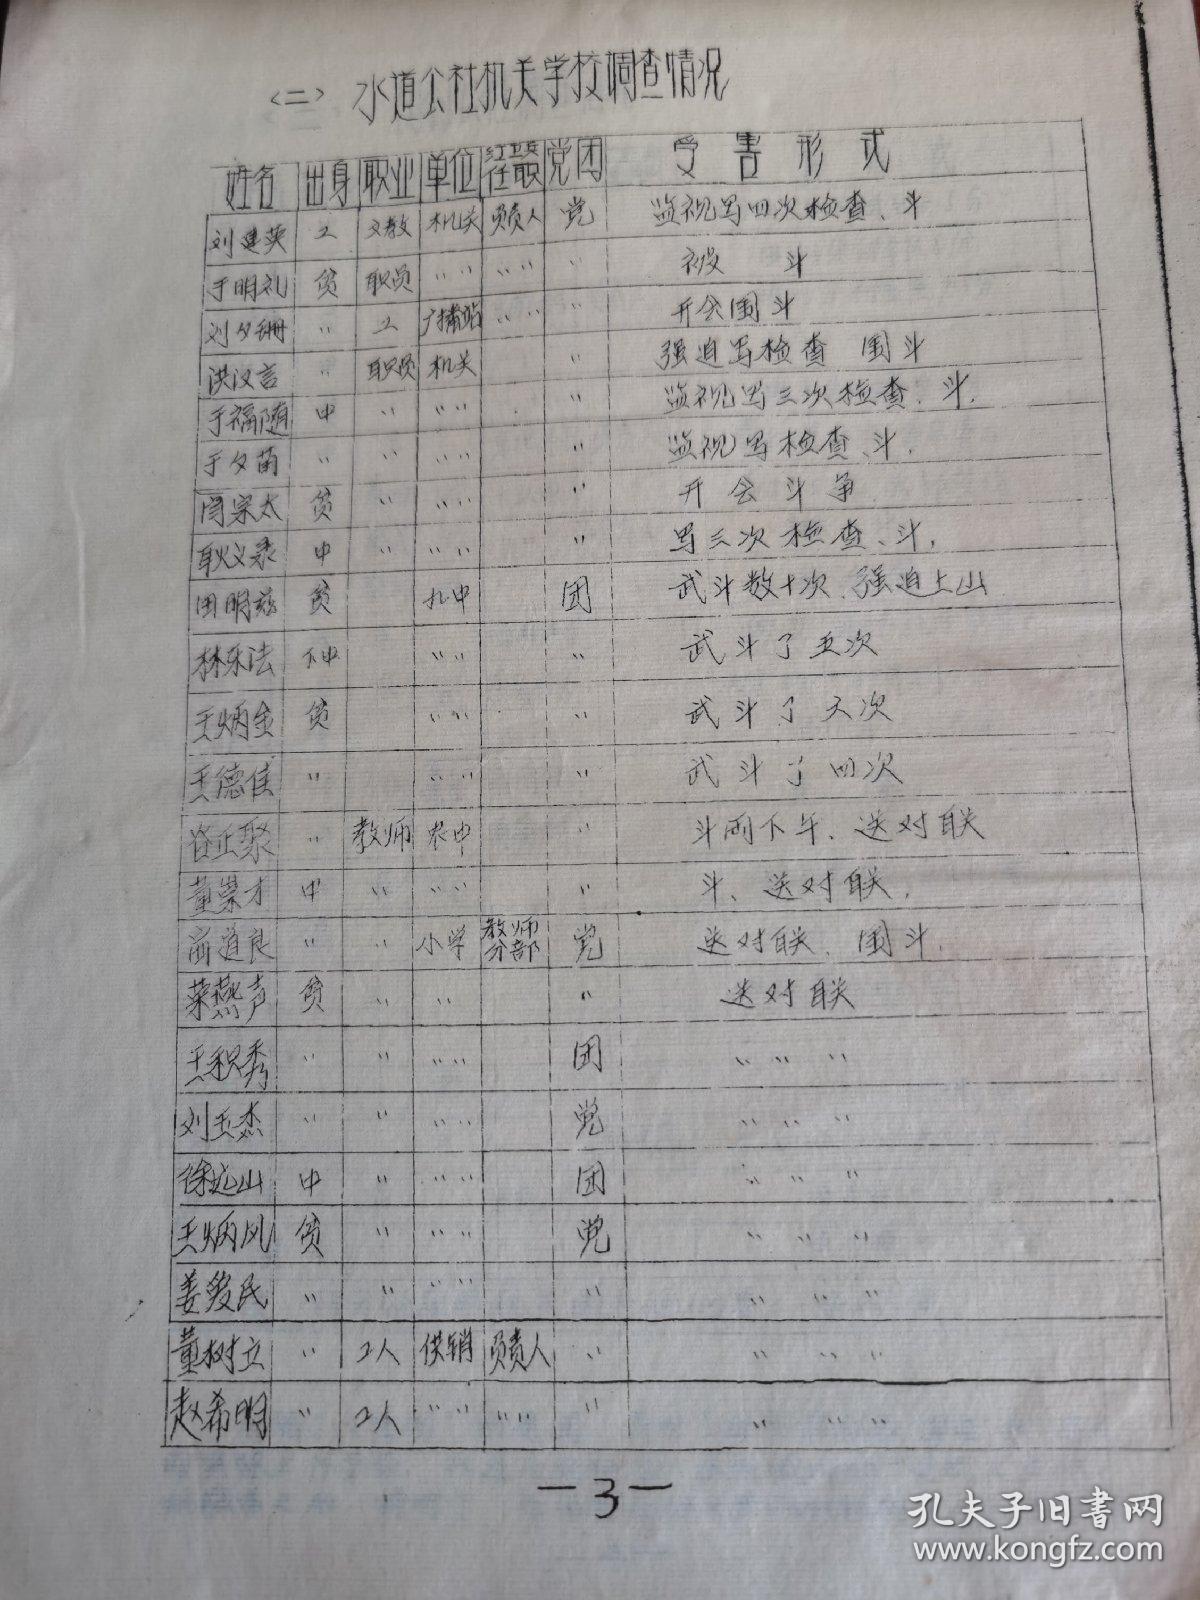 〈二〉 水道公社机关学校调查情况
姓名 出身 职业 单位 红卫兵任职 党团 受害形式
刘建英 工 文教 机关 负责人 党 监视写四次检查、斗
于明礼 贫 职员 〃〃 〃〃 〃 被 斗
刘夕珊 〃 工 广播站 〃〃 〃 开会围斗
洪汉言 〃 职员 机关 〃 强迫写检查 围斗
于福随 中 〃 〃〃 〃 监视写三次检查、斗.
于夕苗 〃 〃 〃〃 〃 监视写检查、斗.
闫宗太 贫 〃 〃〃 〃 开会斗争
耿义录 中 〃 〃〃 〃 写三次检查、斗.
田明兹 贫 九中 团 武斗数十次、强迫上山
林乐法 下中 〃〃 〃 武斗了五次
王炳金 贫 〃〃 〃 武斗了 次
王德佳 〃 〃〃 〃 武斗了四次
谷正聚 〃 教师 农中 〃 斗两下午、送对联
董崇才 中 〃 〃〃 〃 斗、送对联.
道良 〃 〃 小学 教师分部 党 送对联、围斗.
荣燕声 贫 〃 〃〃 〃 送对联
王积秀 〃 〃 〃〃 团 〃〃〃
刘玉杰 〃 〃 〃〃 党 〃〃〃
徐远山 中 〃 〃〃 团 〃〃〃
王炳风 贫 〃 〃〃 党 〃〃〃
姜爱民 〃 〃 〃〃 〃 〃〃〃
董树立 〃 工人 供销 负责人 〃 〃〃〃
赵希明 〃 工人 〃〃 〃〃 〃 〃〃〃
—3—
孔夫子旧书网
www.kongfz.com